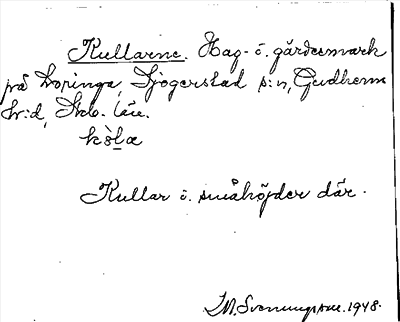 Kullarne. Hag- o. gärdesmark
på Loringa, Sjogerstad s:n, Gudhems
hr:d, Skb. län.
kòl̠a
Kullar o. småhöjder där.
I.M. Svenungsson. 1948.